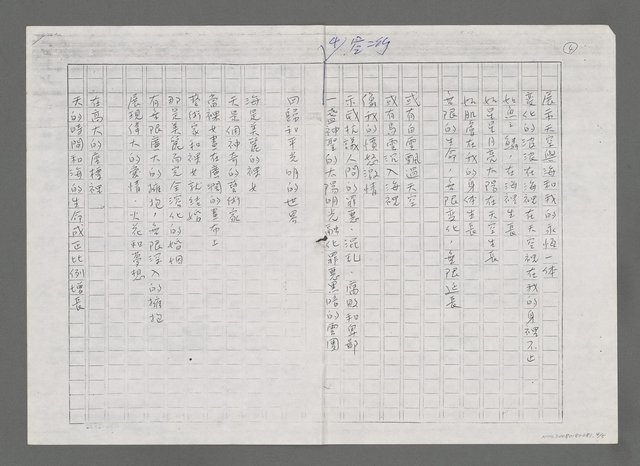 4) 空二行
6
展示天空與海和我的永恆一体
變化的浪波在海裡在天空裡在我的身裡不止
如魚之鱗，在海裡生長
如星星月亮太陽在天空生長
如肌膚在我的身体生長
無限的生命，無限變化，無限延長
或有白雲飄過天空
或有烏雲沉入海裡
像我的憤怒激情
示威抗議人間的罪惡、混乱、腐敗和卑鄙
一盞神聖的太陽明光融化罪惡黑暗的雲團
回歸和平光明的世界
海是美麗的裸女
天是個神奇的藝術家
當裸女畫在廣闊的畫布上
藝術家和裸女就結婚
那是美麗而完全溶化的婚姻
有無限廣大的擁抱，無限深入的擁抱
展現偉大的愛情、火花和夢想
在高大的座標裡
天的時間和海的生命成正比例增長